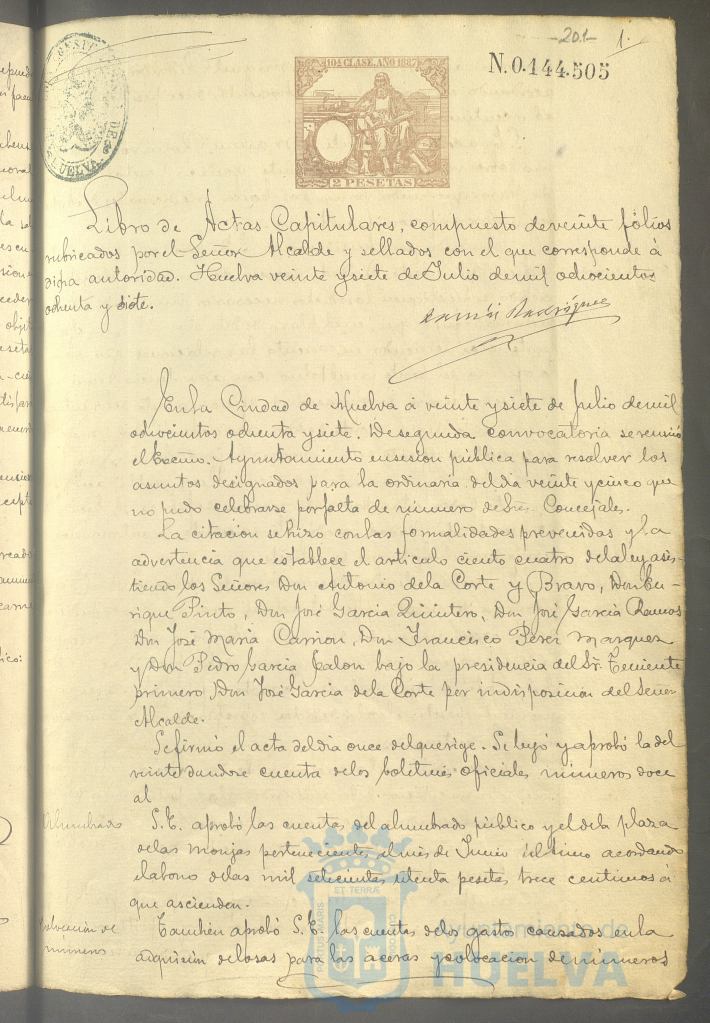 -201-
1.
N.0.144.505
10ª CLASE. AÑO 1887
2 PESETAS
HUELVA
Libro de Actas Capitulares, compuesto de veinte fólios
rubricados por el Señor Alcalde y sellados con el que corresponde á
dicha autoridad. Huelva veinte y siete de Julio de mil ochocientos
ochenta y siete.
Ramón Rodríguez
En la Ciudad de Huelva á veinte y siete de Julio de mil
ochocientos ochenta y siete. De segunda convocatoria se reunió
el Excmo. Ayuntamiento en sesion pública para resolver los
asuntos designados para la ordinaria del dia veinte y cinco que
no pudo celebrarse por falta de número de Sres. Concejales.
La citacion se hizo con las formalidades prevenidas y la
advertencia que establece el articulo ciento cuatro de la ley asis-
tiendo los Señores Don Antonio de la Corte y Bravo, Don En-
rique Pinto, Don José Garcia Quintero, Don José Garcia Ramos
Don José Maria Carrion, Don Francisco Perez Marquez
y Don Pedro Garcia Jalon bajo la presidencia del Sr. Teniente
primero Don José Garcia de la Corte por indisposición del Señor
Alcalde.
Se firmó el acta del dia once del que rige. Se leyó y aprobó la del
veinte dandose cuenta de los boletines oficiales números doce
al
Alumbrado
S.E. aprobó las cuentas del alumbrado público y el de la plaza
de las monjas pertenecientes al mes de Junio último acordando
el abono de las mil setecientas pesetas trece centimos á
que ascienden.
Colocacion de
numeros
Tambien aprobó S.E. las cuentas de los gastos causados en la
adquisicion de losas para las aceras y colocacion de números
PORTUS MARIS ET TERRÆ CUSTODIO
Ayuntamiento de
HUELVA